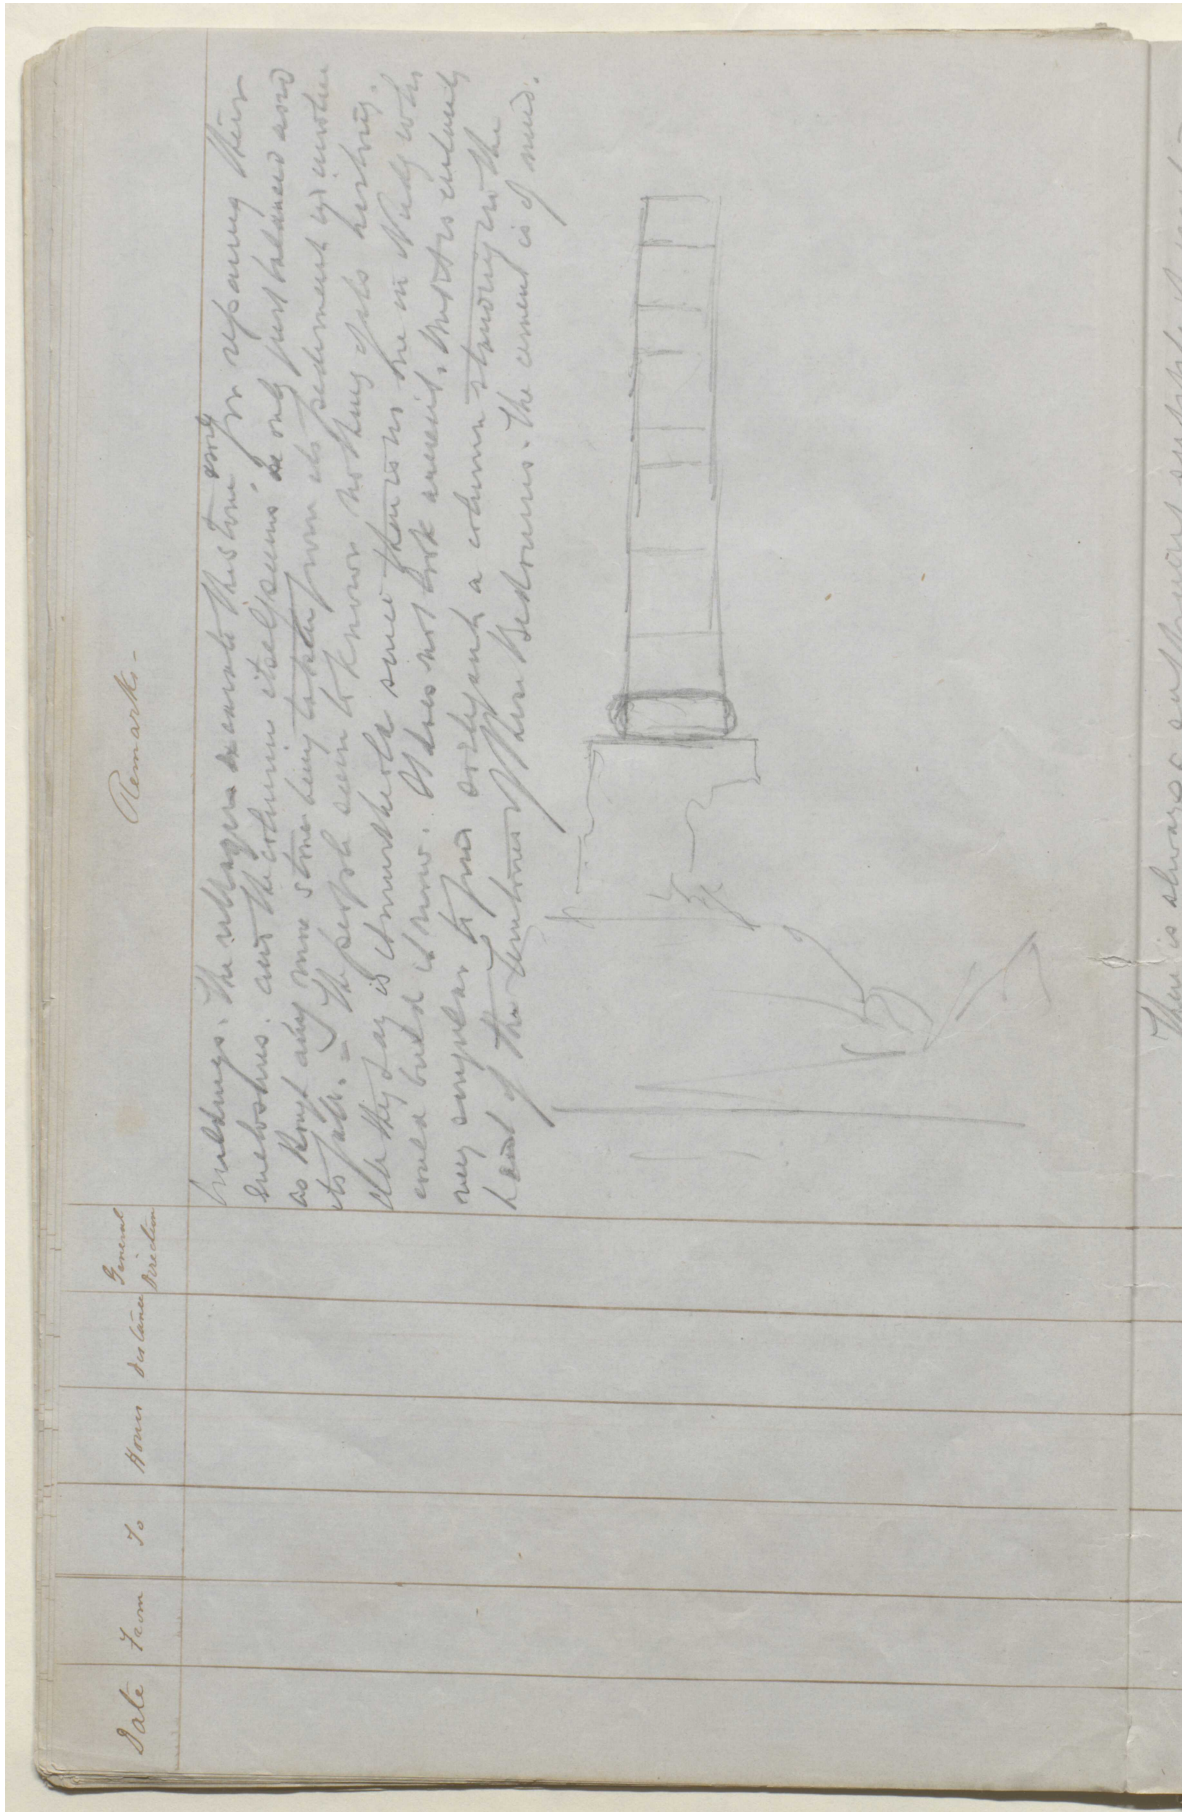 Date From To Hours distance General Direction Remarks -
buildings. The villagers excavate this stone only for repairing their
enclosures. and the column itself seems to be only just balanced and
as though any more stones being taken from its pediment wd involve
its fall. = The people seem to know nothing of its history.
All they say is it must be old since there is no one in Nejd who
could build it now. It does not look ancient. But it is certainly
very singular to find such a column standing in the
land of the tombs of these Bedouins. The cement is of mud.
There is always